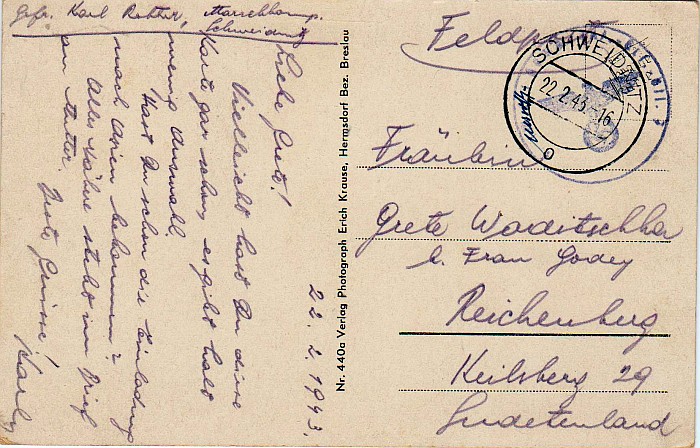 Gefr. Karl Rotter, Marschkomp.
Schweidnitz
22.2.1943.
Liebe Grete!
Vielleicht hast Du diese
Karte gar schon, es gibt halt
wenig Auswahl
Hast Du schon die Einladung
nach Wien bekommen?
Alles Nähere steht im Brief
an Mutter.
Beste Grüsse!
Karly
Nr. 440a Verlag Photograph Erich Krause, Hermsdorf Bez. Breslau
Feldpost
SCHWEIDNITZ
22.2.43.-16
Fräulein
Grete Woditschka
b. Frau Godey
Reichenberg
Keilsberg 29
Sudetenland